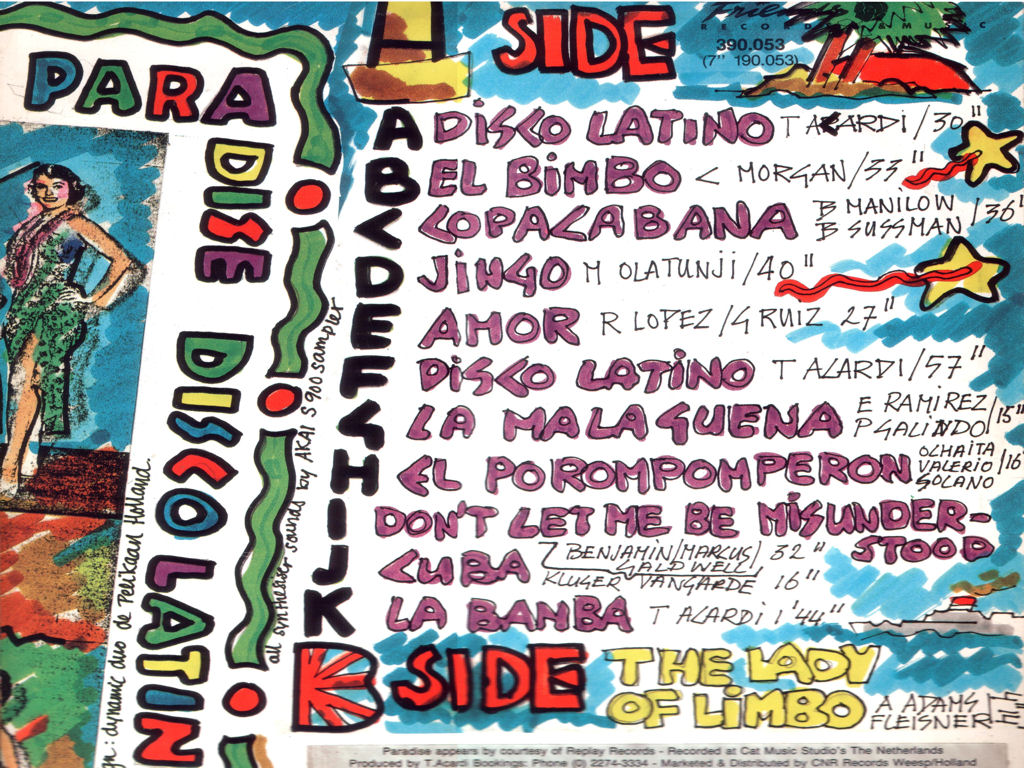 PARADISE DISCO LATIN
SIDE
RECORDS & MUSIC
390.053
(7" 190.053)
A DISCO LATINO T ACARDI/30"
B EL BIMBO C MORGAN/33"
C COPACABANA B MANILOW
B SUSSMAN
D JINGO M OLATUNJI/40"
E AMOR R LOPEZ/G RUIZ 27"
F DISCO LATINO T ACARDI/57"
G LA MALAGUENA E RAMIREZ
P GALINDO/15"
H EL POROMPOMPERON OCHAITA
VALERIO /16"
SOLANO
I DON'T LET ME BE MISUNDER-
STOOD
BENJAMIN/MARCUS/ 32"
CALDWELL
J CUBA KLUGER VANGARDE 16"
K LA BANBA T ACARDI 1'44"
B SIDE THE LADY
OF LIMBO A ADAMS
FLEISNER
all synthesiser sounds by AKAI S 900 sampler
dynamic duo de Pelikaan Holland.
Paradise appears by courtesy of Replay Records - Recorded at Cat Music Studio's The Netherlands
Produced by T.Acardi Bookings: Phone (0) 2274-3334 - Marketed & Distributed by CNR Records Weesp/Holland